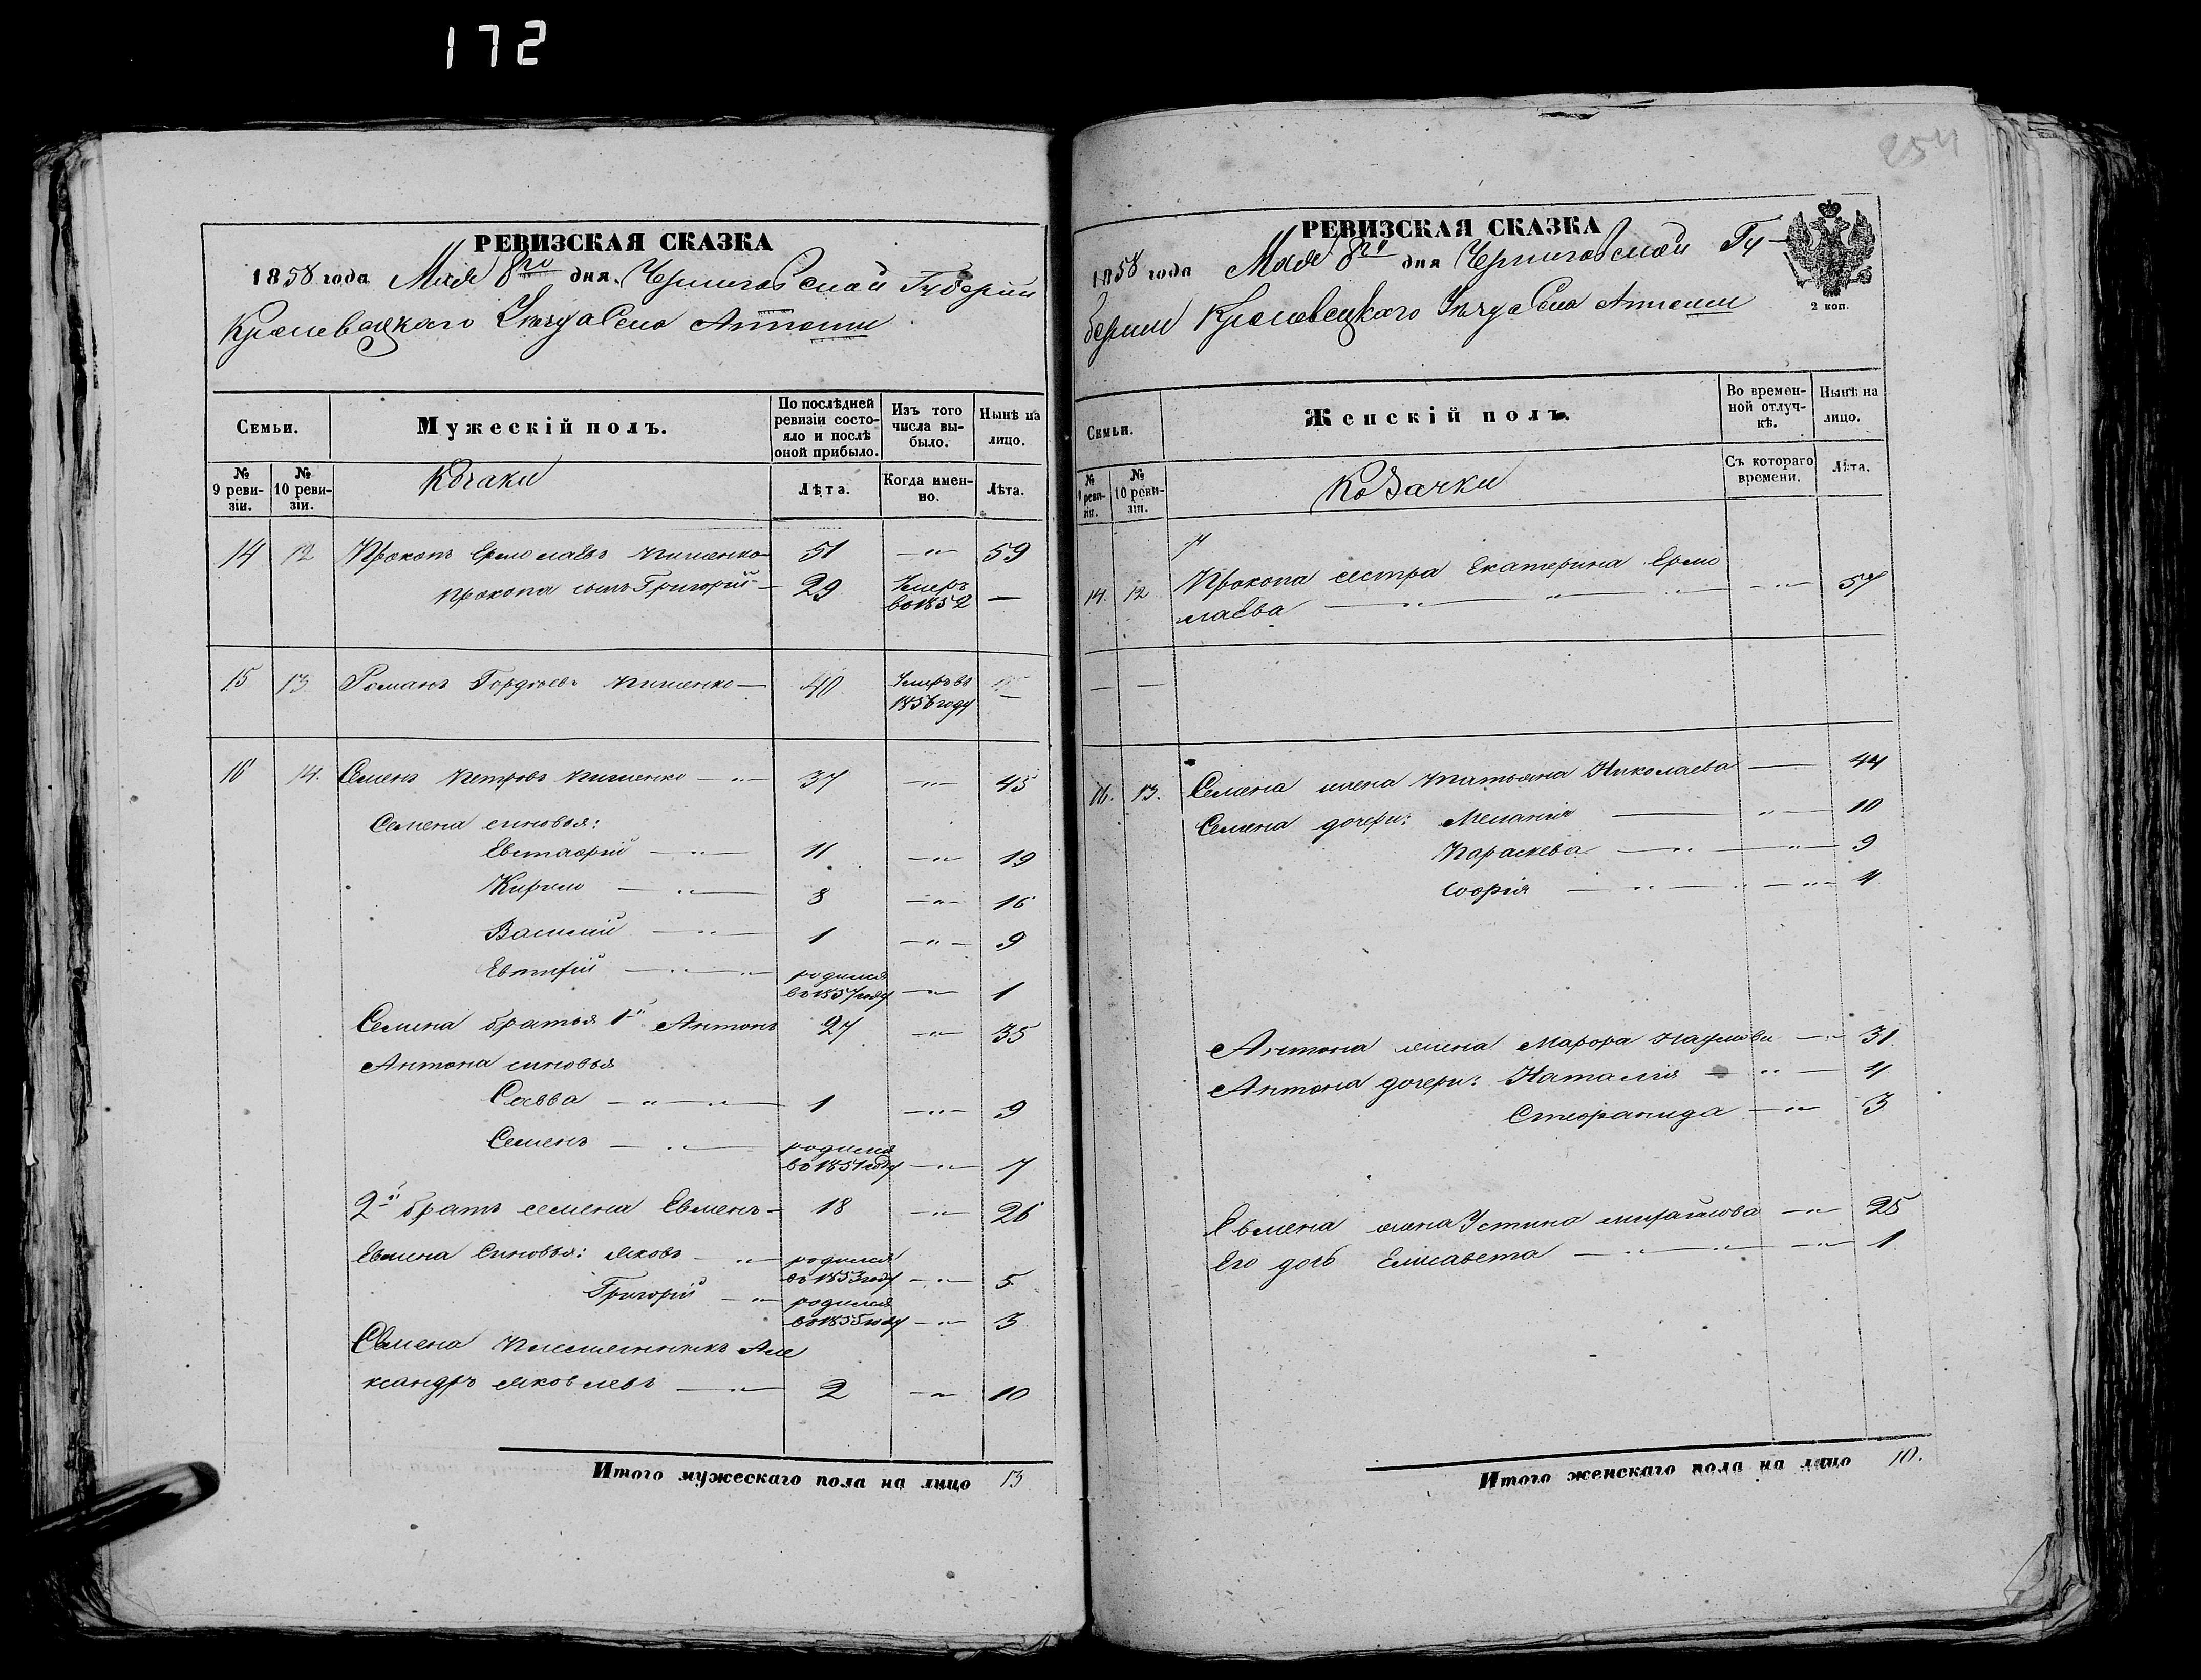 172
254
РЕВИЗСКАЯ СКАЗКА
1858 года Мая 8го дня. Черниговской Губерни
Кролевецкаго Уезда Села
Семьи.
Мужескій полъ.
По послѣдней ревизіи состояло и послѣ оной прибыло.
Изъ того числа выбыло.
Нынѣ на лицо.
№ 9 ревизіи.
№ 10 ревизіи.
Козаки
Лѣта.
Когда именно.
Лѣта.
14 12 Прокопъ Ермолаевъ 51 —"— 59
Прокопа сынъ Григорій — 29 Умеръ во 1852 —
15 13. Романъ Гордѣевъ — 40 Умеръ въ 1856 году —
16 14. Семенъ Петровъ —"— 37 —"— 45
Семена синовья:
Евстафій —"— 11 —"— 19
Кирило —"— 8 —"— 16
Василий —"— 1 —"— 9
Евтифій —"—"— родился во 1857 году —"— 1
Семена братья 1й Антонъ 27 —"— 35
Антона синовья
Савва —"—"— 1 —"— 9
Семенъ —"— родился во 1851 году —"— 7
2й братъ семена Евменъ — 18 —"— 26
Евмена Синовья: Яковъ —"— родился во 1853 году —"— 5
Григорій —"— родился во 1855 году —"— 3
Семена Племянникъ Але
ксандръ Яковлевъ —"— 2 —"— 10
Итого мужескаго пола на лицо 13
РЕВИЗСКАЯ СКАЗКА
1858 года Мая 8го дня Черниговской Гу-
берни Кролевецкаго Уезда Села
2 коп.
Семьи.
Женскій полъ.
Во временной отлучкѣ.
Нынѣ на лицо.
№ 9 ревизіи.
№ 10 ревизіи.
Козачки
Съ котораго времени.
Лѣта.
14. 12 Прокопа сестра Екатерина Ермо
лаева —"—"—"— —"— 57
— —
16. 13. Семена жена Татьяна Николаева — 44
Семена дочери: Меланія —"— 10
Параскева —"—"— 9
Софія —"—"—"— 4
Антона жена Марфа Наумова —"— 31.
Антона дочери: Наталія —"— 4
Стефанида —"— 3
Евмена жена Устина михайлова —"— 25
Его дочь Елисавета —"—"—"— 1.
Итого женскаго пола на лицо 10.